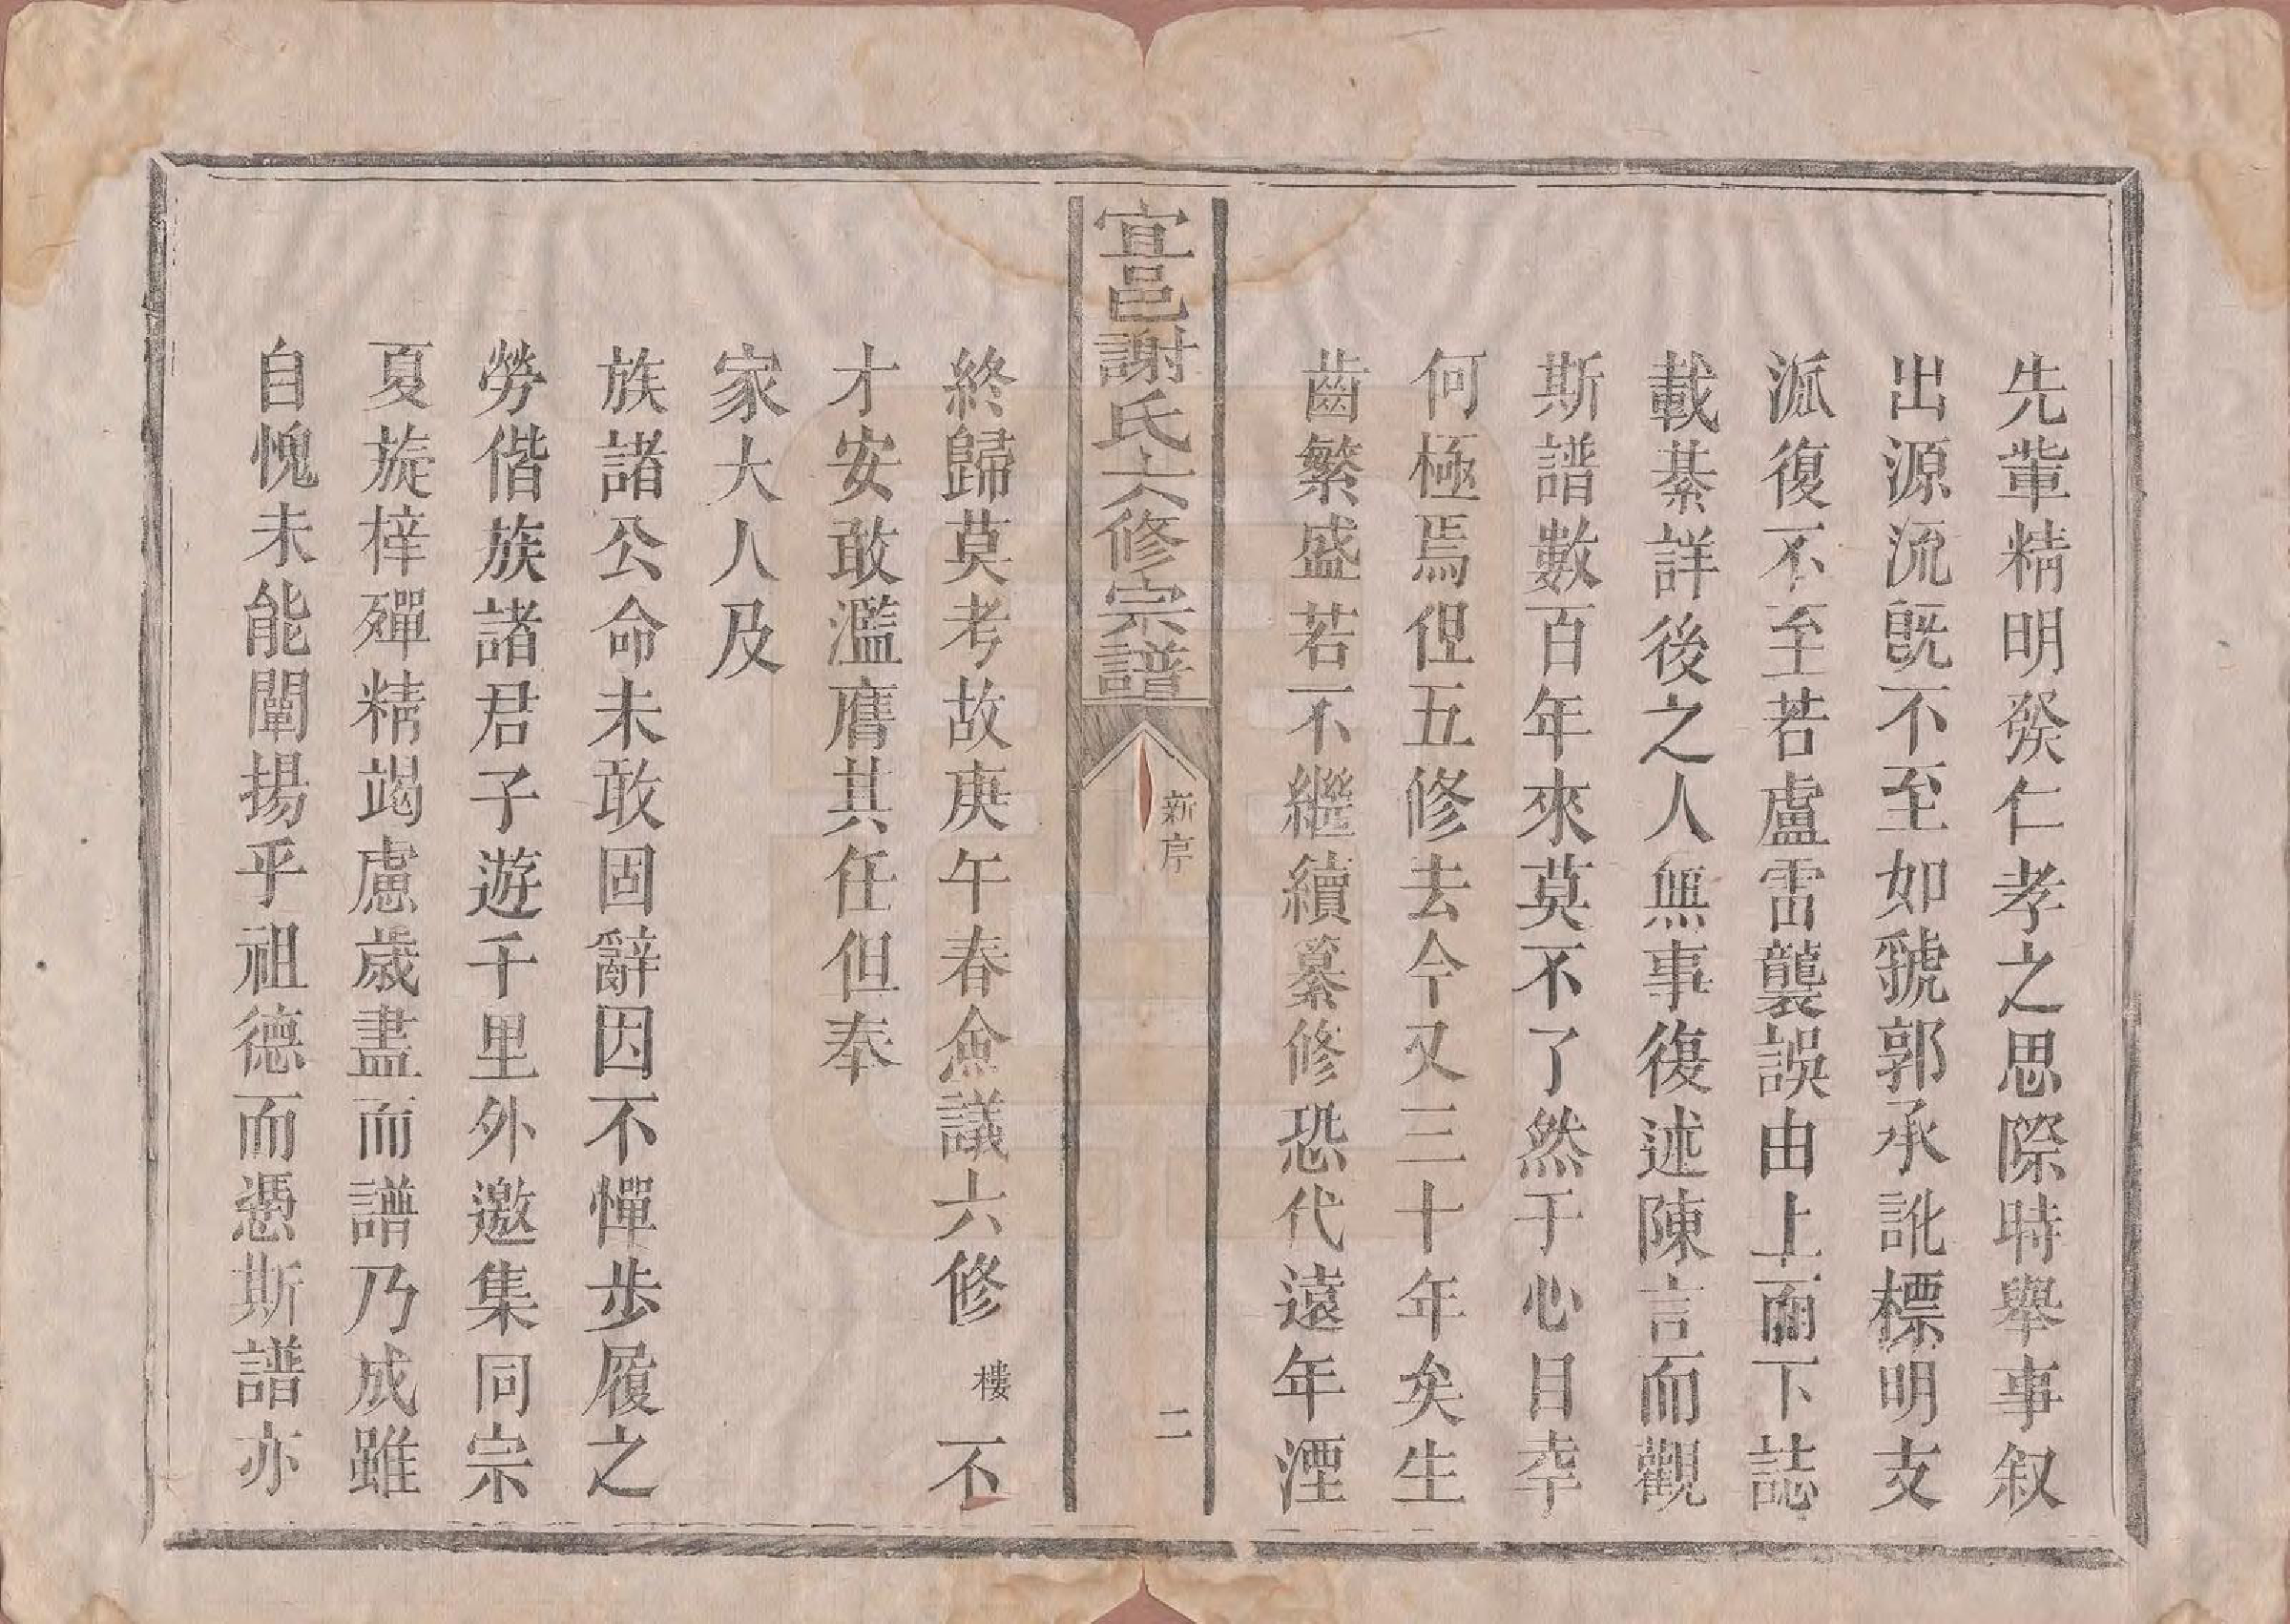 先輩精明發仁孝之思際時舉事叙
出源流旣不至如虢郭承訛標明支
派復不至若盧雷襲誤由上而下誌
載綦詳後之人無事復述陳言而觀
斯譜數百年來莫不了然于心目幸
何極焉但五修去今又三十年矣生
齒繁盛若不繼續纂修恐代遠年湮
宜邑謝氏六修宗譜
新序
二
終歸莫考故庚午春僉議六修樓不
才安敢濫膺其任但奉
家大人及
族諸公命未敢固辭因不憚步履之
勞偕族諸君子遊千里外邀集同宗
夏旋梓殫精竭慮歲盡而譜乃成雖
自愧未能闡揚乎祖德而憑斯譜亦